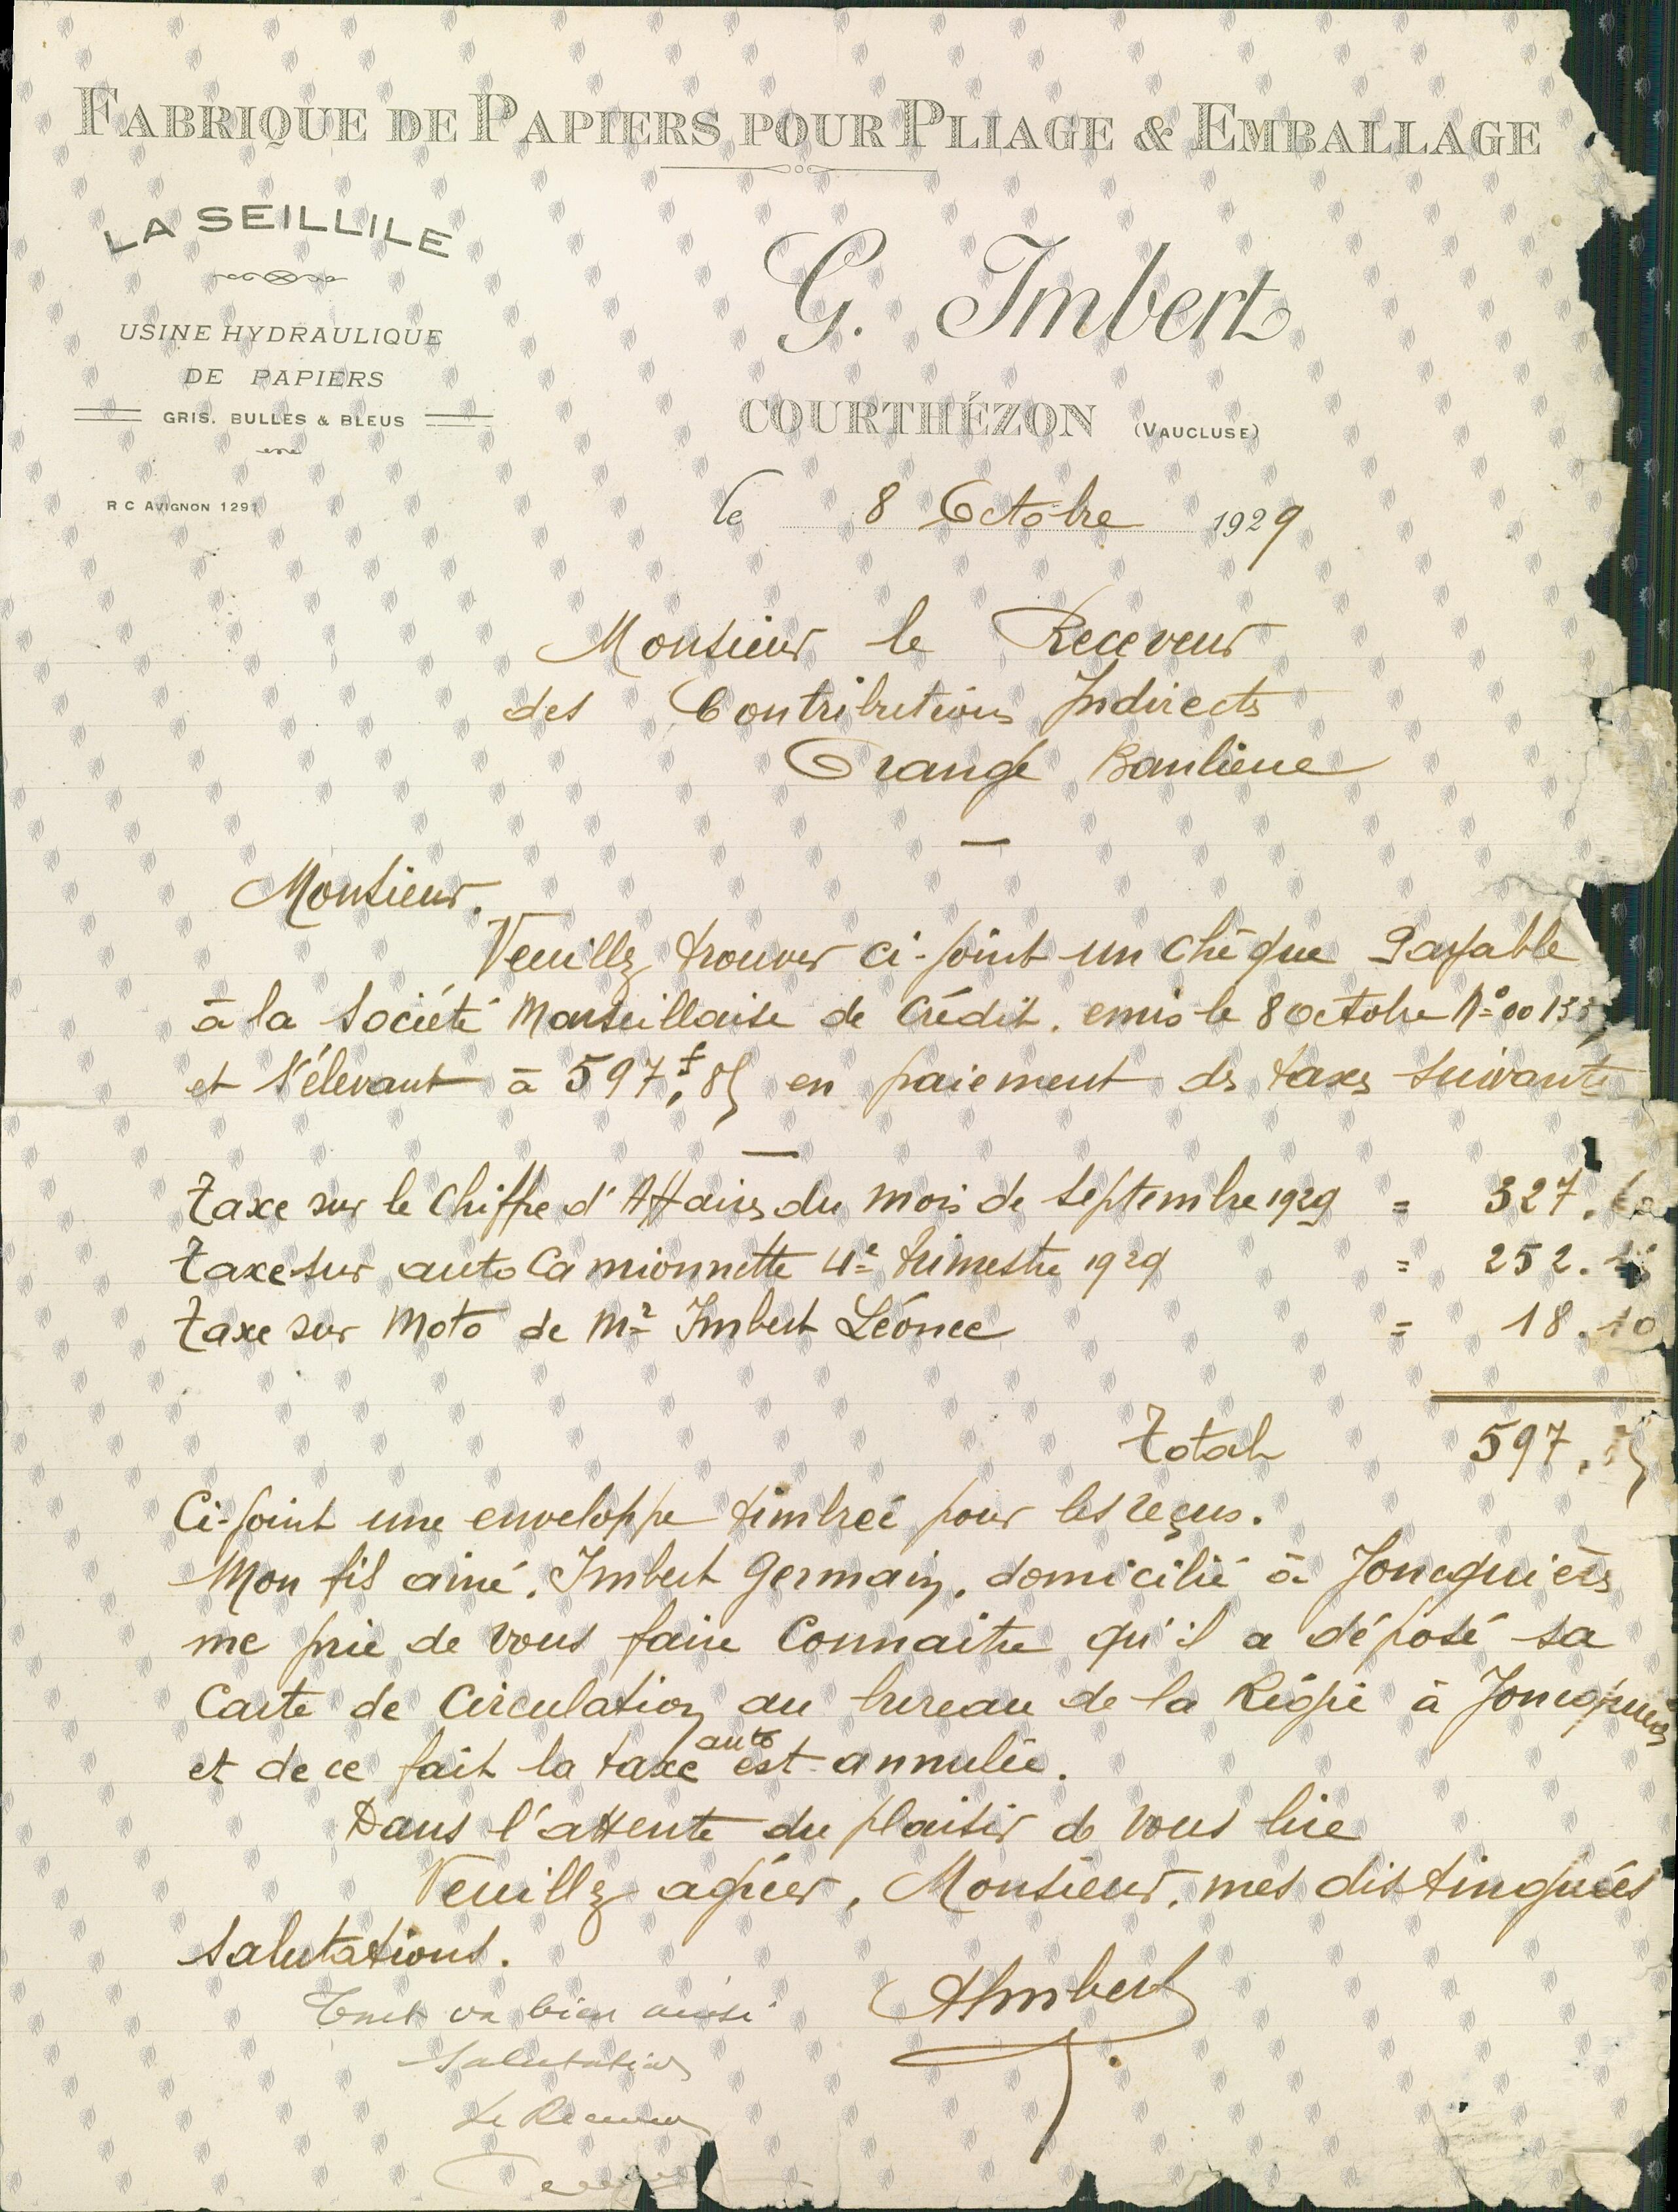 FABRIQUE DE PAPIERS POUR PLIAGE & EMBALLAGE
LA SEILLILE
USINE HYDRAULIQUE
DE PAPIERS
GRIS. BULLES & BLEUS
R C AVIGNON 1291
G. Imbert
COURTHÉZON (VAUCLUSE)
le 8 Octobre 1929
Monsieur le Receveur
des Contributions Indirects
Orange Banlieue
Monsieur.
Veuillez trouver ci-joint un chèque Payable
à la Société Marseillaise de Crédit. emis le 8 octobre N° 00135
et s'élevant à 597f,85 en paiement des taxes suivantes
taxe sur le chiffre d'Affaires du mois de septembre 1929 = 327.
taxe sur auto Camionnette 4e trimestre 1929 = 252.
taxe sur Moto de Mr Imbert Léonce = 18.10
Total 597.85
Ci-joint une enveloppe timbreé pour les reçus.
Mon fils ainé. Imbert Germain. domicilié à Joncquières
me prie de vous faire Connaitre qu'il a déposé sa
Carte de Circulation au bureau de la Régie à Joncquières
et de ce fait la taxe auto est annulée.
Dans l'attente du plaisir de vous lire
Veuillez agréer, Monsieur, mes distinguées
salutations.
AImbert
Tout va bien ainsi
Salutations
Le Receveur